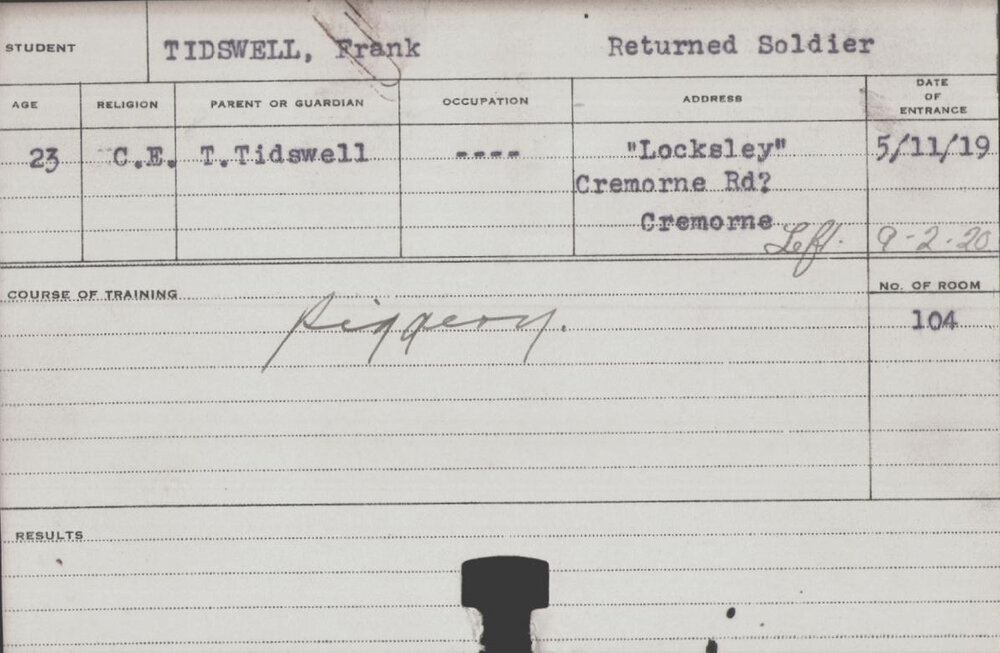 STUDENT TIDSWELL, Frank Returned Soldier
AGE RELIGION PARENT OR GUARDIAN OCCUPATION ADDRESS DATE OF ENTRANCE
23 C.E. T.Tidswell ---- "Locksley" 5/11/19
Cremorne Rd?
Cremorne
Left. 9-2-20
COURSE OF TRAINING No. OF ROOM
Piggery. 104
RESULTS